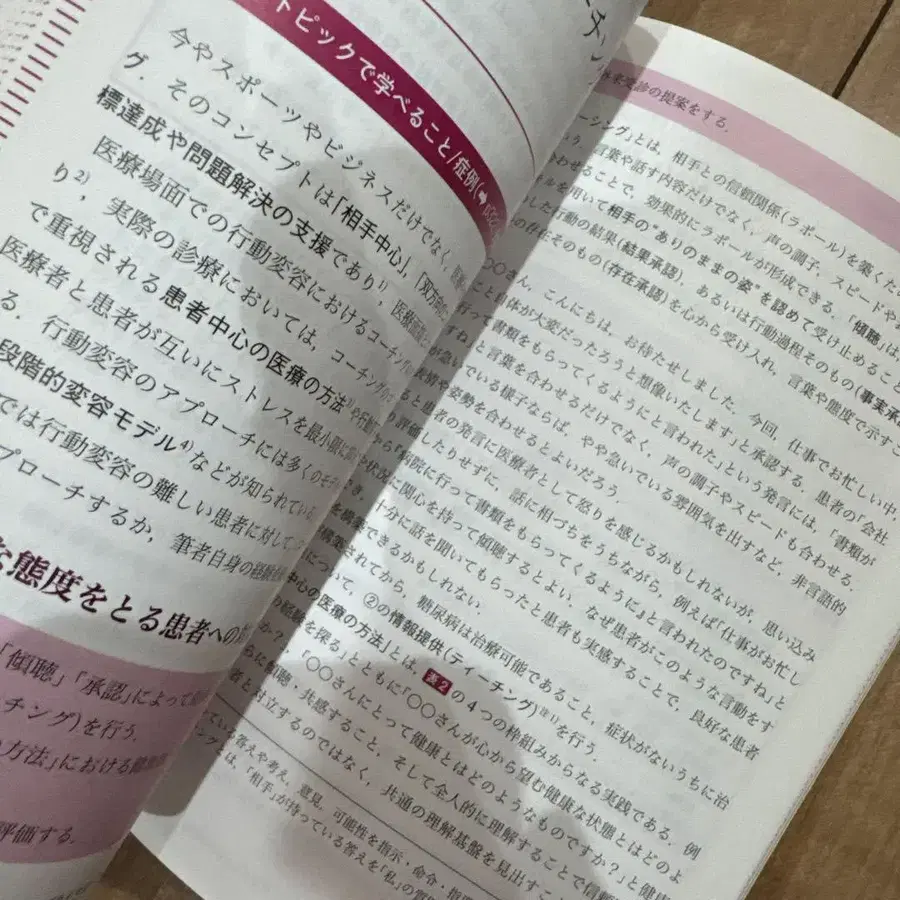 トピックで学べること/症例(
今やスポーツやビジネスだけでなく,
グ.そのコンセプトは「相手中心」,「双方向
標達成や問題解決の支援であり1),医療面接
医療場面での行動変容におけるコーチング
り2),実際の診療においては,コーチング
で重視される患者中心の医療の方法
医療者と患者が互いにストレスを最小限に
る.行動変容のアプローチには多くのモデル
段階的変容モデル4)などが知られている
では行動変容の難しい患者に対して
プローチするか,筆者自身の経験
な態度をとる患者への
「傾聴」「承認」によって
ーチング)を行う.
方法」における
評価する.
来受診の提案をする.
ーシング」とは,相手との信頼関係(ラポール)を築くた
言葉や話す内容だけでなく,声の調子,スピードや
合わせることで,効果的にラポールが形成できる.「傾聴」は,
ルを用いて相手の"ありのままの姿"を認めて受け止めること
した行動の結果(結果承認),あるいは行動過程そのもの(事実承
の存在そのもの(存在承認)を心から受け入れ,言葉や態度で示すこ
ん,こんにちは,お待たせしました.今回,仕事でお忙しい中,
こと自体が大変だったろうと想像いたします」と承認する.患者の「会社
行って書類をもらってくるようにと言われた」という発言には,「書類が
すね」と言葉を合わせるだけでなく,声の調子やスピードも合わせる.
でいる様子ならば,やや急いでいる雰囲気を出すなど,非言語的
姿勢を合わせるとよいだろう.
者の発言に医療者として怒りを感じるかもしれないが,思い込み
評価したりせずに,話に相づちをうちながら,例えば「仕事がお忙し
病院に行って書類をもらってくるように』と言われたのですね」と
状況に関心を持って傾聴するとよい.なぜ患者がこのような言動をす
き,十分に話を聞いてもらったと患者も実感することで,良好な患者
を構築できるかもしれない.
構築されてから,糖尿病は治療可能であること,症状がないうちに治
について,②の情報提供(ティーチング)注1)を行う.
中心の医療の方法」とは,表2の4つの枠組みからなる実践である.例
の経験を探るとともに「○○さんが心から望む健康な状態とはどのよ
か?「○○さんにとって健康とはどのようなものですか?」と健康
らに傾聴・共感すること,そして全人的に理解することで信頼
者と対立するのではなく,共通の理解基盤を見出すこ
ている答えや考え,意見,可能性を指示・命令・指
は,「相手」が持っている答えを「私」の質